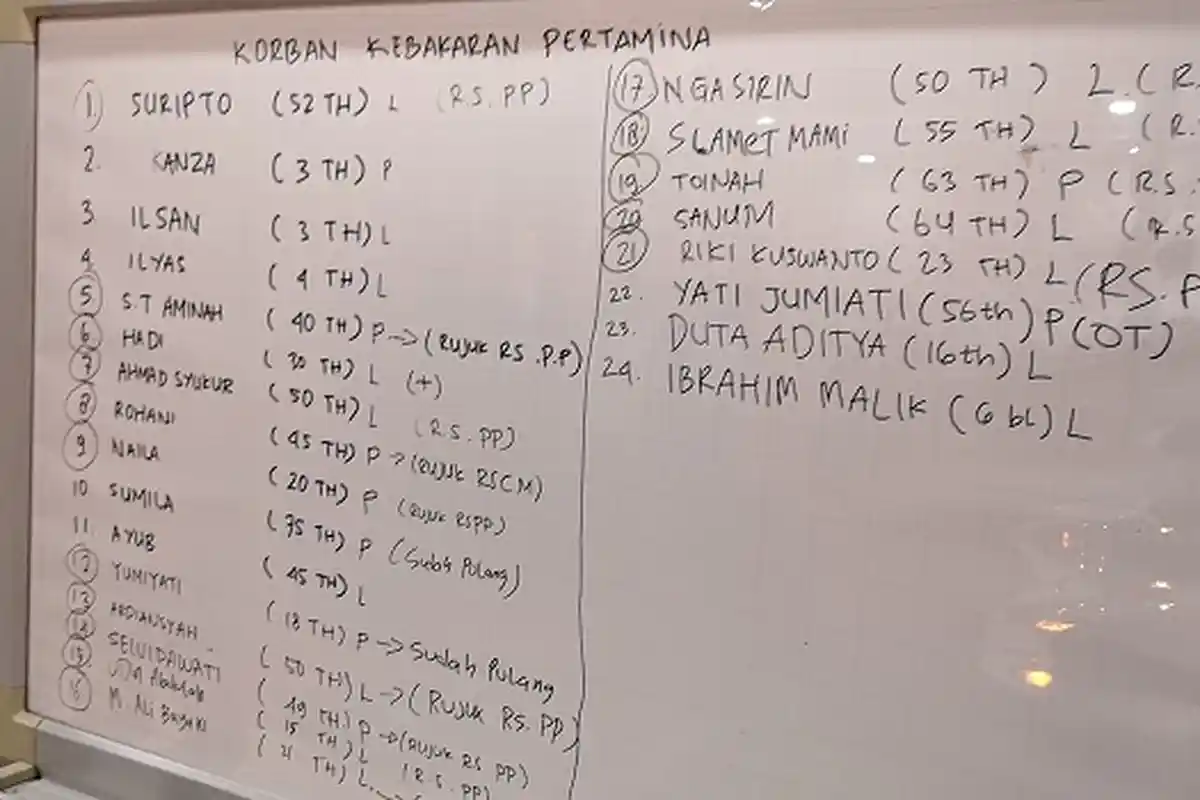 KORBAN KEBAKARAN PERTAMINA
1. SURIPTO (52 TH) L (RS. PP)
2. KANZA (3 TH) P
3 ILSAN (3 TH) L
4. ILYAS (4 TH) L
5 S.T AMINAH (40 TH) P -> (RUJUK RS. P.P)
6 HADI (30 TH) L (+)
7 AHMAD SYUKUR (50 TH) L (R.S. PP)
8 ROHANI (45 TH) P -> (RUJUK RSCM)
9 NAILA (20 TH) P (RUJUK RSPP)
10 SUMILA (75 TH) P (Sudah Pulang)
11. AYUB (45 TH) L
12 YUMIYATI (18 TH) P -> Sudah Pulang
13 ARDIANSYAH (50 TH) L -> (RUJUK RS. PP)
14 SELVIDAWATI (49 TH) P -> (RUJUK RS PP)
15 (15 TH) L (R.S. PP)
16 M. ALI (21 TH) L ->
17 NGASIRIN (50 TH) L (R.
18 SLAMET MAMI (55 TH) L (R.
19 TOINAH (63 TH) P (R.S
20 SANUM (64 TH) L (R.S
21 RIKI KUSWANTO (23 TH) L (RS. P
22. YATI JUMIATI (56th) P (OT)
23. DUTA ADITYA (16th) L
24. IBRAHIM MALIK (6 bl) L